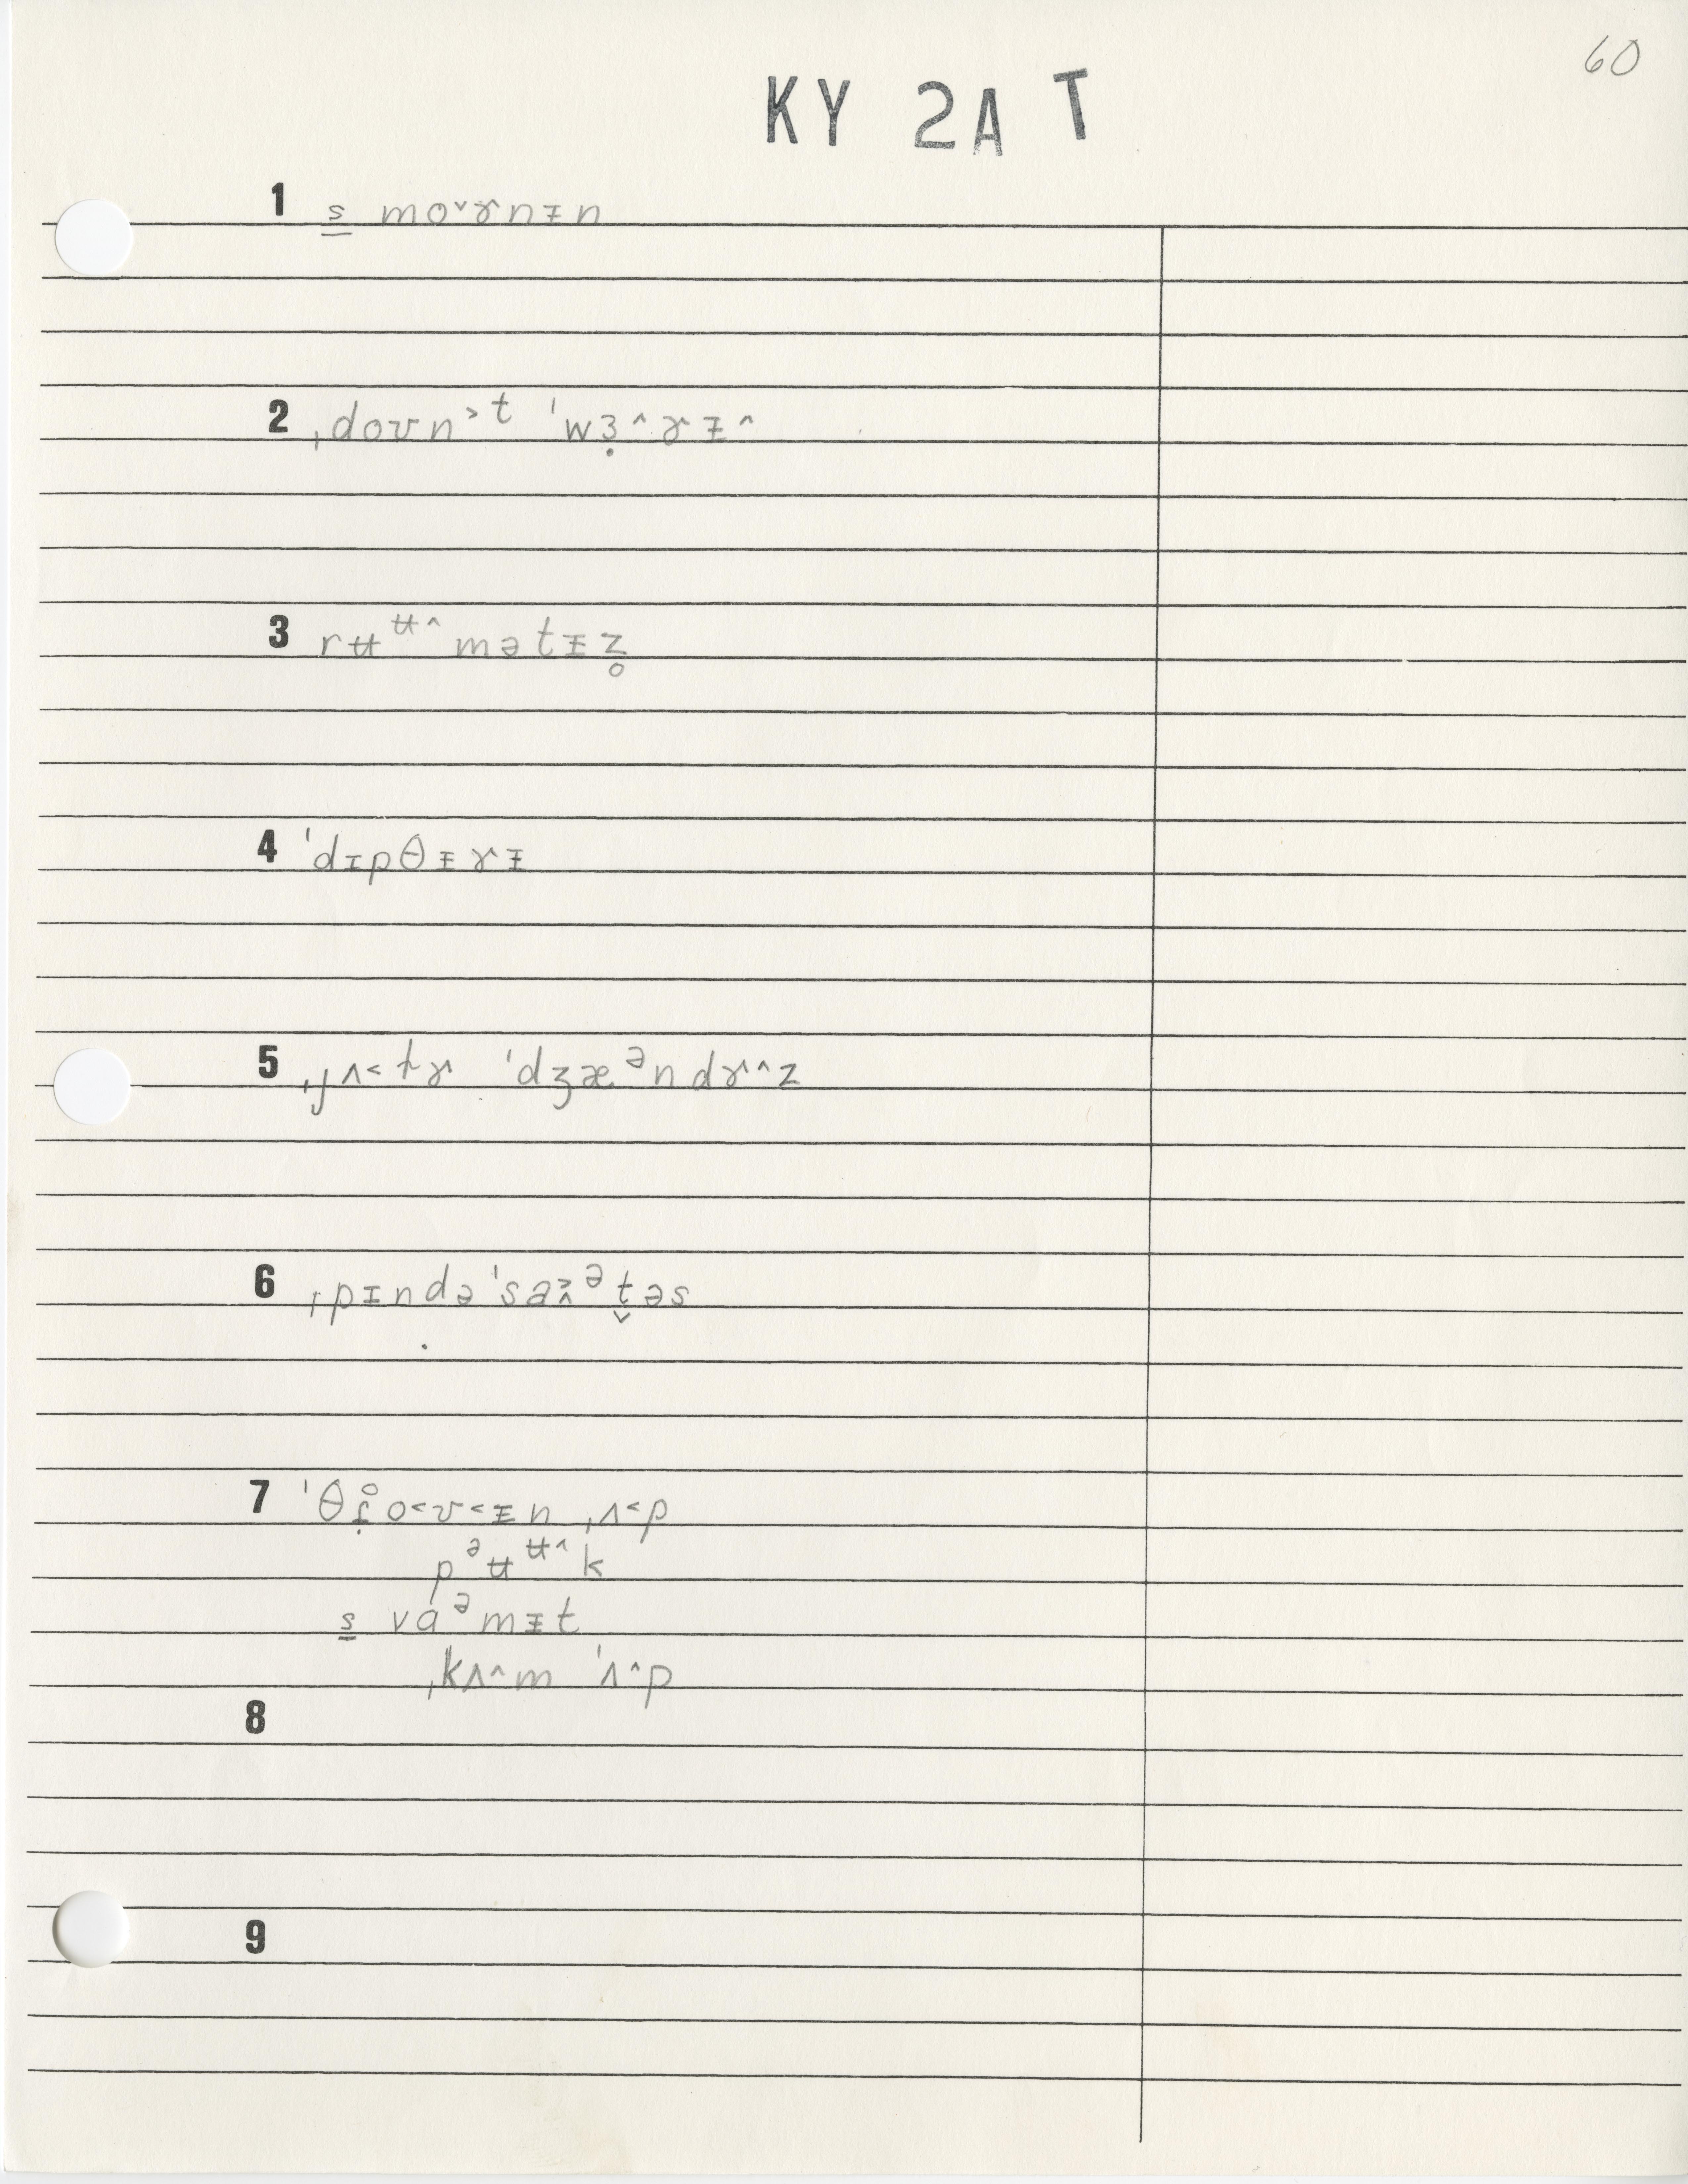 60
KY 2A T
1 s̲ mo˅ɤnɪ̵n
2 ˌdoʊn˃t ˈwɜ̣˄ɤɪ̵˄
3 rʉᶶ̵˄mətɪ̵z̥
4 ˈdɪpθɪ̵ɤɪ̵
5 ˌjʌ˂tɤ ˈdʒæᵊndɤ˄˄z
6 ˌpɪndəˈsaɪ̯ᵊt̬əs
7 ˈθr̥̣o˂ʊ˂ɪ̵n ˌʌ˂p
pᵊʉᶶ̵˄k
s̲ vɑᵊmɪ̵t
ˌkʌ˄m ˈʌ˄p
8
9